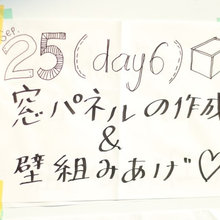 Sep.
25(day6)
窓パネルの作成
&
壁組みあげ♡